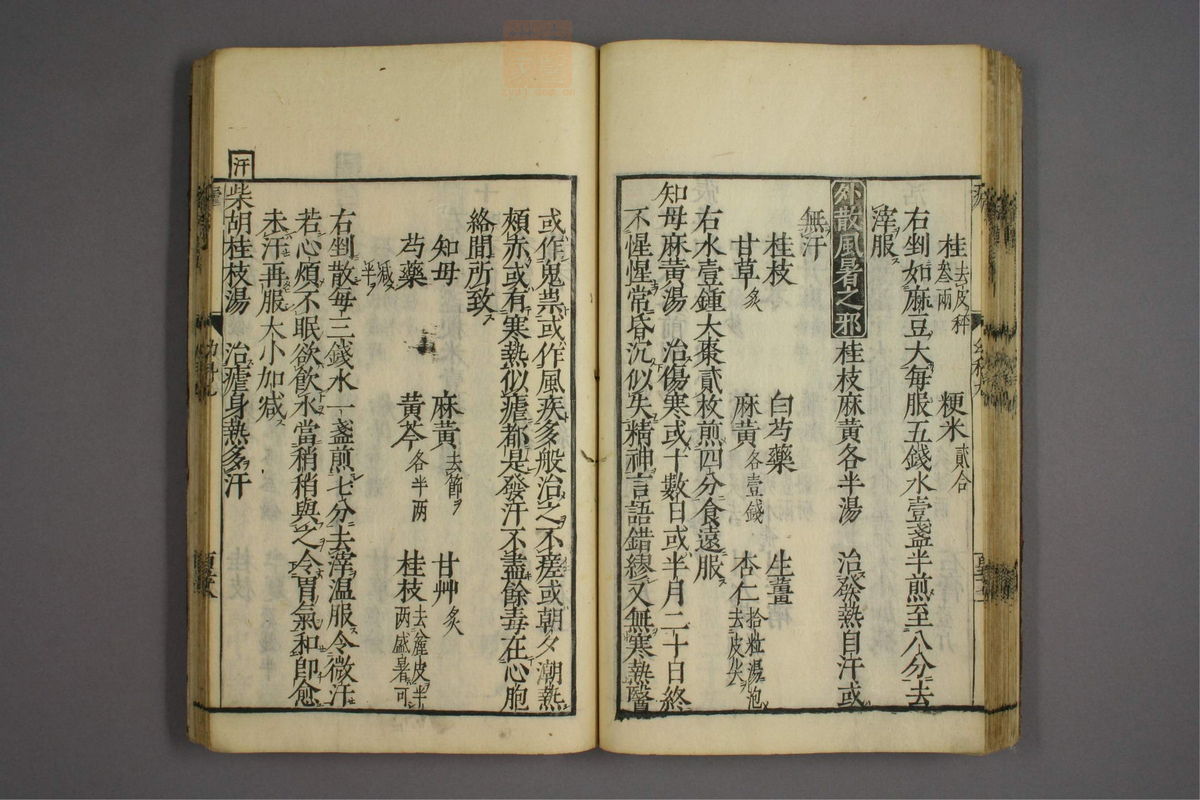 桂 去皮秤叁兩 粳米 貳合
右剉如麻豆大每服五錢水壹盞半煎至八分去
滓服
外散風暑之邪 桂枝麻黃各半湯 治發熱自汗或
無汗
桂枝 白芍藥 生薑
甘草 炙 麻黃 各壹錢 杏仁 拾粒湯泡去皮尖
右水壹鍾大棗貳枚煎四分食遠服
知母麻黃湯 治傷寒或十數日或半月二十日終
不惺惺常昏沉似失精神言語錯繆又無寒熱醫
或作鬼祟或作風疾多般治之不瘥或朝夕潮熱
頰赤或有寒熱似瘧都是發汗不盡餘毒在心胞
絡間所致
知母 麻黃 去節 甘艸 炙
芍藥 黃芩 各半兩 桂枝 去麁皮半两盛暑可
减半
右剉散每三錢水一盞煎七分去滓温服令微汗
若心煩不眠欲飲水當稍稍與之令胃氣和即愈
未汗再服大小加减
汗
柴胡桂枝湯 治瘧身熱多汗